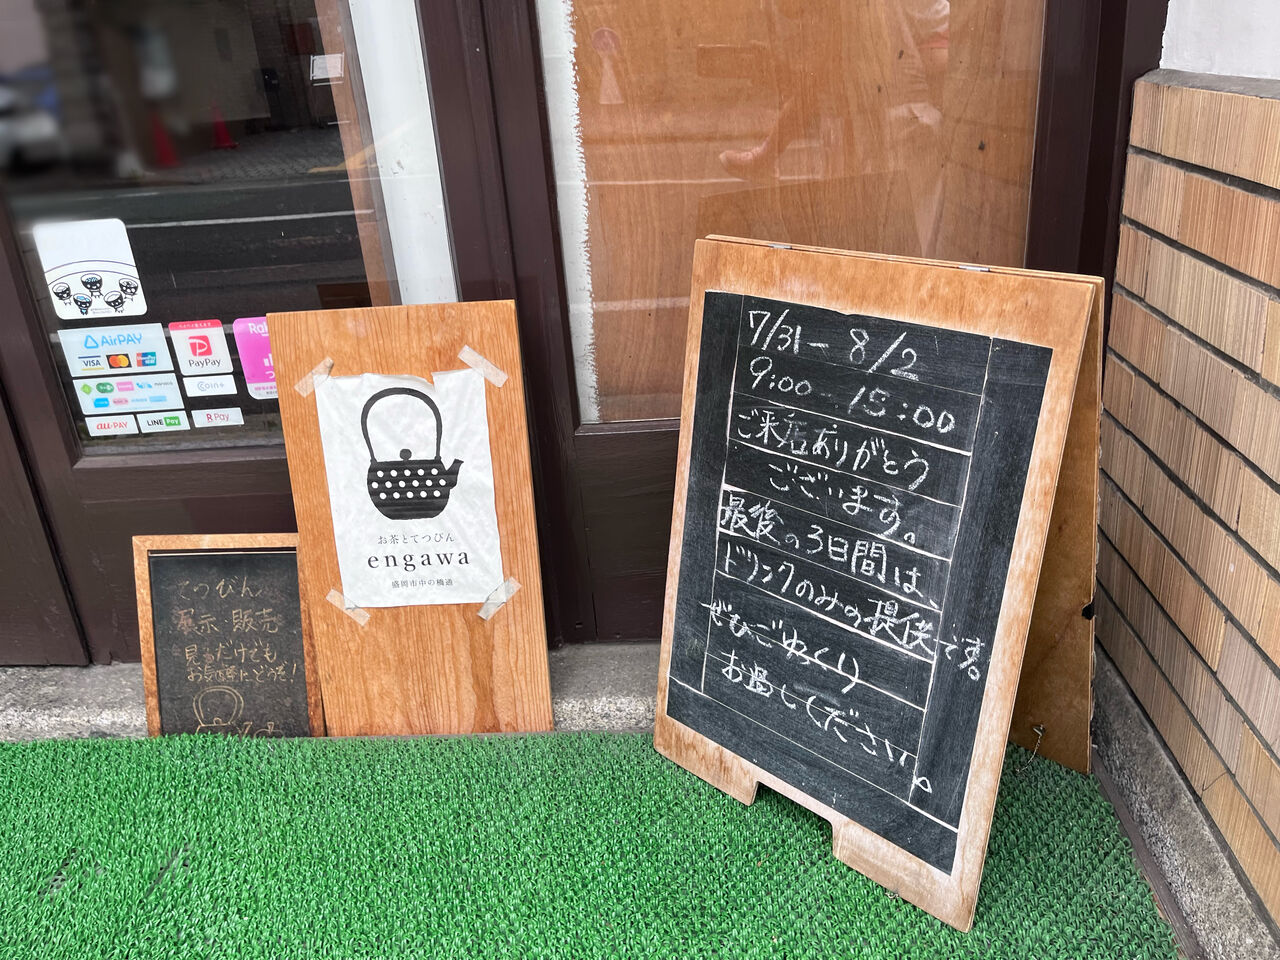 AirPAY
VISA
PayPay
Coin+
auPAY
LINE Pay
R Pay
お茶とてつびん
engawa
盛岡市中の橋通
てつびん
展示・販売
見るだけでも
お気軽にどうぞ!
7/31 - 8/2
9:00 - 15:00
ご来店ありがとう
ございます。
最後の3日間は、
ドリンクのみの提供です。
ぜひごゆっくり
お過しください。